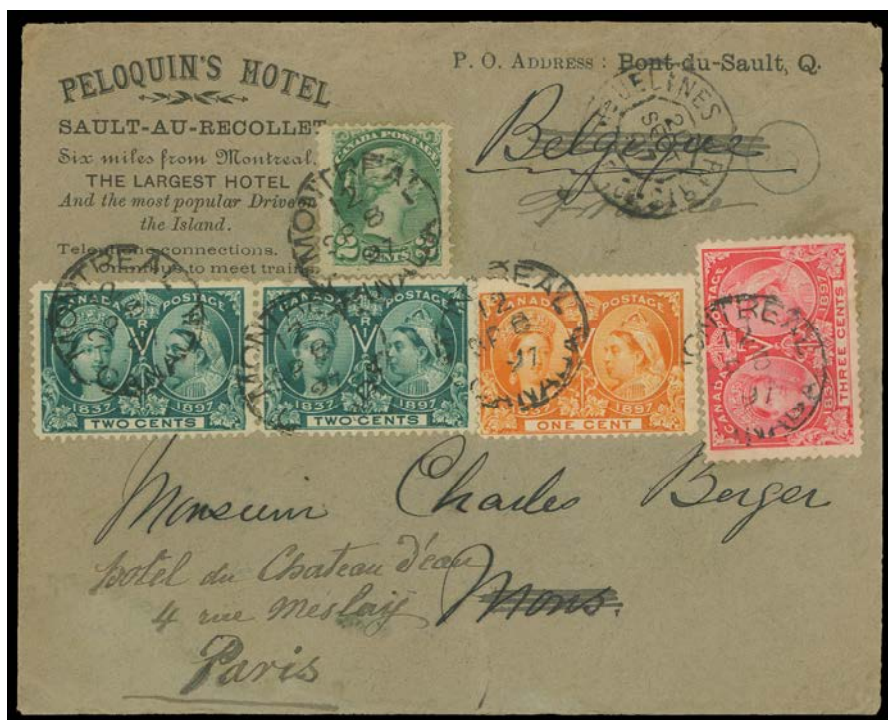 PELOQUIN'S HOTEL
SAULT-AU-RECOLLET
Six miles from Montreal.
THE LARGEST HOTEL
And the most popular Drive on
the Island.
Telephone connections.
Omnibus to meet trains.
P. O. ADDRESS : Pont-du-Sault, Q.
Belgique
CANADA POSTAGE
2 CENTS 2
MONTREAL
12
SP 8
97
CANADA
CANADA POSTAGE
1837 1897
TWO CENTS
MONTREAL
CANADA
CANADA POSTAGE
1837 1897
TWO CENTS
MONTREAL
12
SP 8
97
CANADA POSTAGE
1837 1897
ONE CENT
MONTREAL
12
SP 8
97
CANADA
CANADA POSTAGE
1837 1897
THREE CENTS
MONTREAL
12
97
PARIS
Monsieur Charles Berger
hotel du Chateau d'eau
4 rue Meslay Mons.
Paris